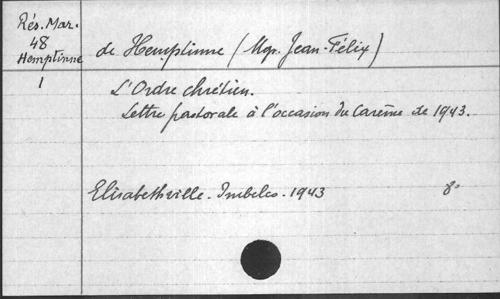 Rés. Mar.
48
Hemptinne
1
de Hemptinne (Mgr. Jean-Félix)
L'Ordre chrétien.
Lettre pastorale à l'occasion du Carême de 1943.
Elisabethville. Imbelco. 1943 8°